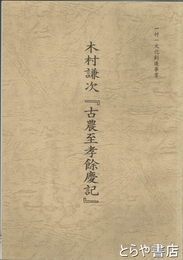 一村一文化創造事業
木村謙次『古農至孝餘慶記』
とらや書店